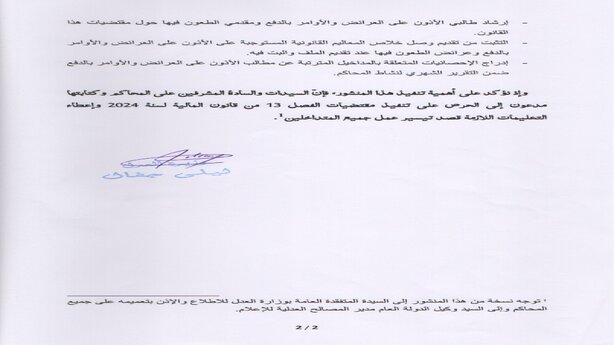 - إرشاد طالبي الأذون على العرائض والأوامر بالدفع ومقدمي الطعون فيها حول مقتضيات هذا
القانون.
- التثبت من تقديم وصل خلاص المعاليم القانونية المستوجبة على الأذون على العرائض والأوامر
بالدفع وعرائض الطعون فيها عند تقديم الملف والبت فيه.
- إدراج الإحصائيات المتعلقة بالمداخيل المترتبة عن مطالب الأذون على العرائض والأوامر بالدفع
ضمن التقرير الشهري لنشاط المحاكم.
وإذ نؤكد على أهمية تنفيذ هذا المنشور، فإنّ السيدات والسادة المشرفين على المحاكم وكتابتها
مدعون إلى الحرص على تنفيذ مقتضيات الفصل 13 من قانون المالية لسنة 2024 وإعطاء
التعليمات اللازمة قصد تيسير عمل جميع المتداخلين¹.
ليلى جفال
¹ توجه نسخة من هذا المنشور إلى السيدة المتفقدة العامة بوزارة العدل للاطلاع والإذن بتعميمه على جميع
المحاكم وإلى السيد وكيل الدولة العام مدير المصالح العدلية للإعلام.
2 / 2